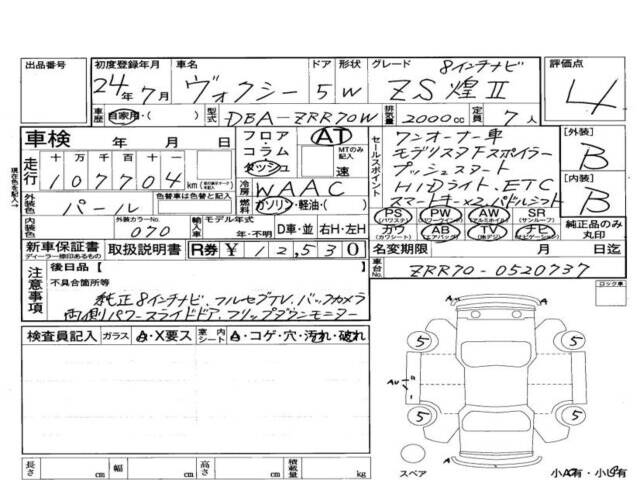 8インチナビ
出品番号 初度登録年月 車名 ドア 形状 グレード 評価点
24年7月 ヴォクシー 5 W ZS煌Ⅱ 4
車歴 自家用・( ) 型式 DBA-ZRR70W 排気量 2000cc 定員 7人
車検 年 月 日 フロア コラム ダッシュ AT MTのみ記入 速
セールスポイント ワンオーナー車 [外装] B
モデリスタFスポイラー
プッシュスタート
HIDライト、ETC [内装] B
スマートキー×2 パドルシフト
現在を記入→ 走行 十 万 千 百 十 一
107704 km
冷房 WAAC
外装色 パール 色替車は色替と記入 燃料 ガソリン・軽油・( )
PS (パワステ) PW (パワーウインド) AW (アルミホイル) SR (サンルーフ) 純正品のみ丸印
カワ (カワシート) AB (エアバック) TV (純正) ナビ (ナビゲーション)
内装色 外装カラーNo. 070 輸入車 モデル年式 年・不明 D車・並 右H・左H
新車保証書 ディーラー様印あるもの 取扱説明書 R券 ¥12,530 名変期限 月 日迄
注意事項 後日品[ ] 車台No. ZRR70-0520737
不具合箇所等 ロック車
純正8インチナビ、フルセグTV、バックカメラ
両側パワースライドドア、フリップダウンモニター
検査員記入 ガラス A・X要ス 室内 シート A・コゲ・穴・汚れ・破れ
A
5 5
AU
5 5
長さ cm 幅 cm 高さ cm 積載量 kg
スペア 小A有・小U有